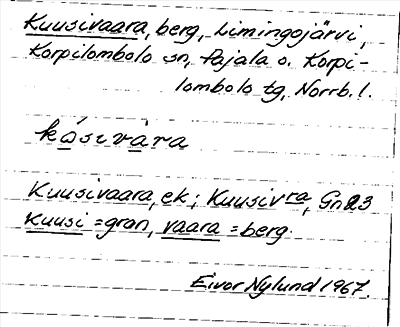 Kuusivaara, berg, Limingojärvi,
Korpilombolo sn, Pajala o. Korpi-
lombolo tg, Norrb. l.
kɷsivàra
Kuusivaara, ek; Kuusivra, Gn 23
kuusi = gran, vaara = berg.
Eivor Nylund 1967.